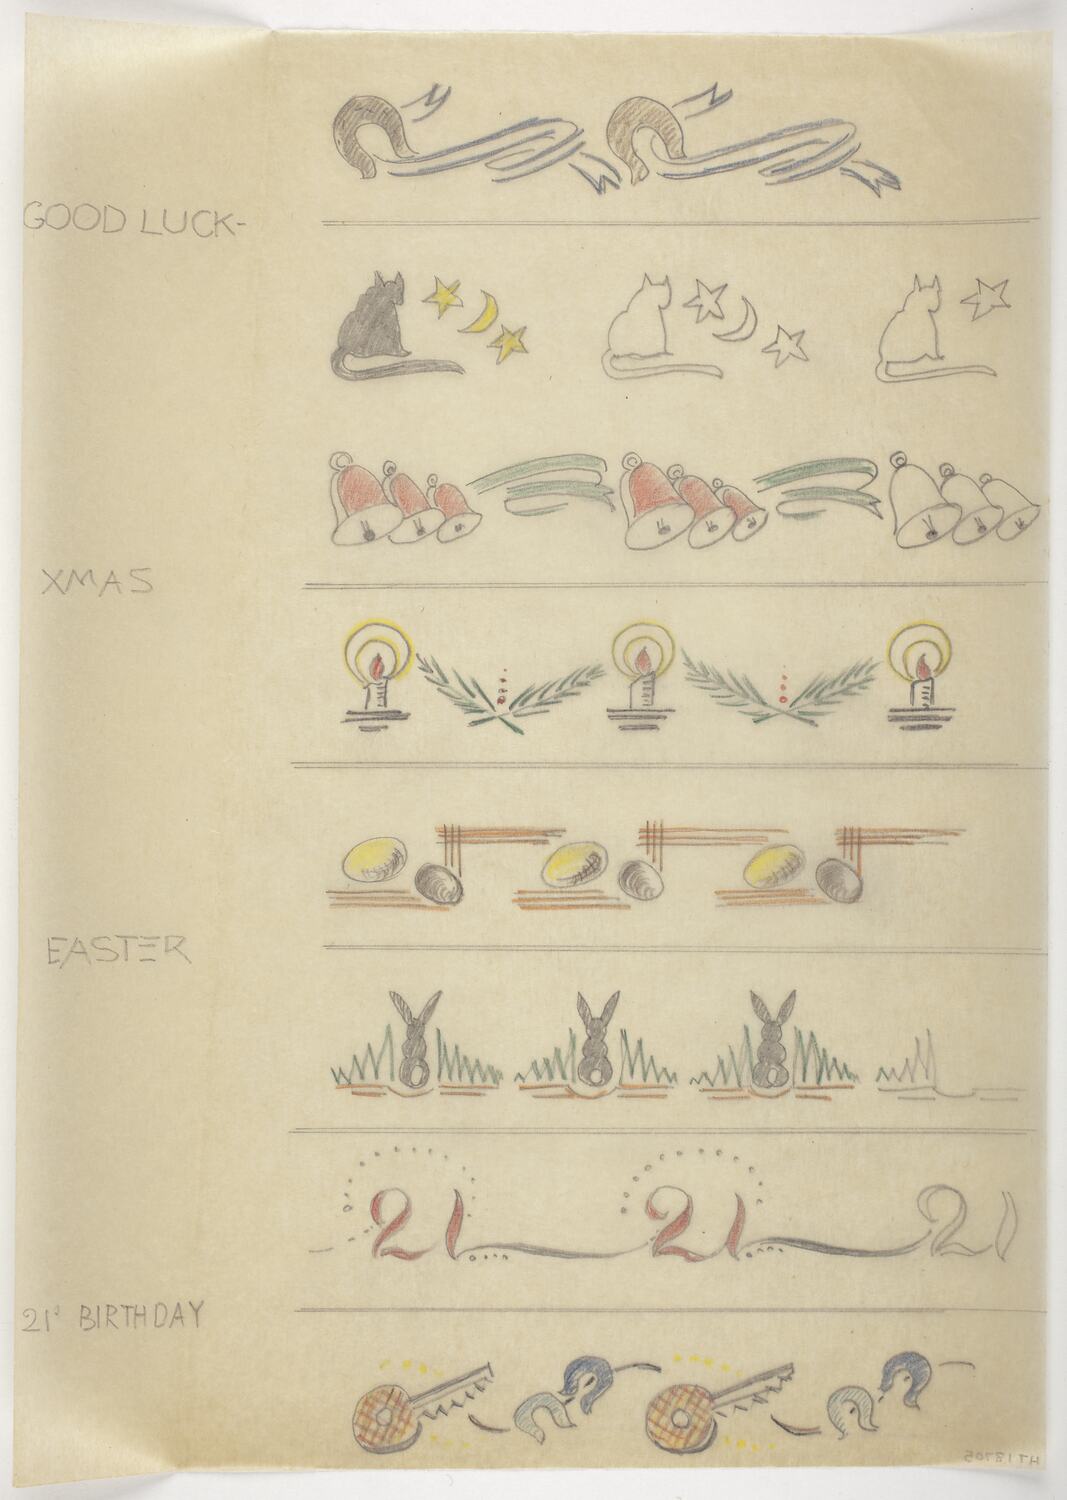 GOOD LUCK-
XMAS
EASTER
21 21 21
21st BIRTHDAY
HT 13705